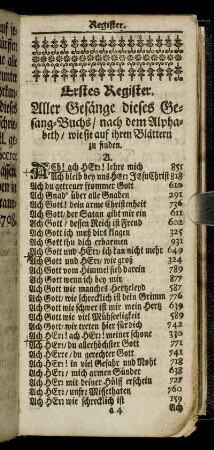 Register.
Erstes Register.
Aller Gesänge dieses Ge-
sang-Buchs/ nach dem Alpha-
beth/ wie sie auf ihren Blättern
zu finden.
A.
Ach! ach HErr! lehre mich 851
Ach bleib bey uns HErr JEsu Christ 818
Ach du getreuer frommer Gott 610
Ach Gnad' über alle Gnaden 291
Ach Gott/ dein arme Christenheit 736
Ach Gott/ der Satan gibt mir ein 611
Ach Gott/ dessen Reich ist Freud 602
Ach Gott ich muß dirs klagen 325
Ach Gott thu dich erbarmen 931
Ach Gott und HErr/ ich kan nicht mehr 649
Ach Gott und HErr/ wie groß 324
Ach Gott vom Himmel sieh darein 789
Ach Gott wenn ich bey mir 877
Ach Gott wie manches Hertzeleyd 587
Ach Gott/ wie schrecklich ist dein Grimm 776
Ach Gott wie schwer ist mir mein Hertz 639
Ach Gott wie viel Mühseligkeit 589
Ach Gott/ wir treten hier für dich 742
Ach HErr! ach HErr! meiner schone 330
Ach HErr/ du allerhöchster Gott 771
Ach HErre/ du gerechter Gott 741
Ach HErr! in viel Gefahr und Noht 718
Ach HErr/ mich armen Sünder 638
Ach HErr mit deiner Hülff erschein 725
Ach HErr/ unsre Missethaten 760
Ach HErr wie schrecklich ist 159
a 4 Ach